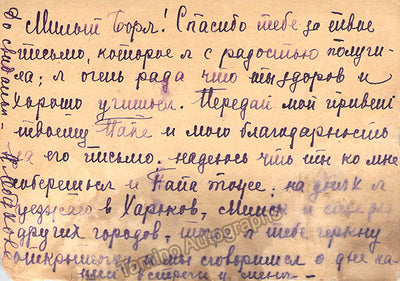 Милый Боря! Спасибо тебе за твое
письмо, которое я с радостью получи-
ла; я очень рада что ты здоров и
хорошо учишься. Передай мой привет
твоему Папе и мою благодарность
за его письмо. надеюсь что ты ко мне
соберешься и Папа тоже; на днях я
уезжаю в Харьков, Минск и еще ряд
других городов, и я тебе черкну
открыточку и мы сговоримся о дне на-
шей встречи у меня –
До свидания –
Tamino Autographs